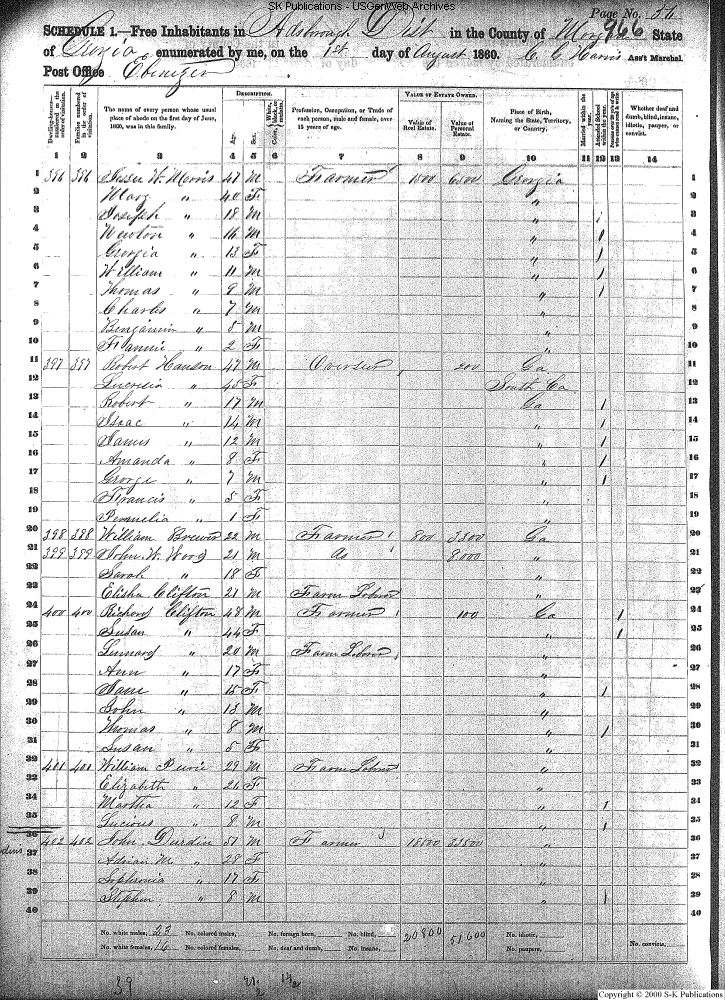 SK Publications - USGenWeb Archives
Page No. 56
966
SCHEDULE 1.—Free Inhabitants in Adsborough Dist in the County of Morgan State
of Georgia enumerated by me, on the 1st day of August 1860. C. C. Harris Ass't Marshal.
Post Office Ebenezer
Dwelling-houses—numbered in the order of visitation.
Families numbered in the order of visitation.
The name of every person whose usual place of abode on the first day of June, 1860, was in this family.
DESCRIPTION.
Age.
Sex.
Color, White, black, or mulatto.
Profession, Occupation, or Trade of each person, male and female, over 15 years of age.
VALUE OF ESTATE OWNED.
Value of Real Estate.
Value of Personal Estate.
Place of Birth, Naming the State, Territory, or Country.
Married within the year.
Attended School within the year.
Persons over 20 y'rs of age who cannot read & write.
Whether deaf and dumb, blind, insane, idiotic, pauper, or convict.
1 2 3 4 5 6 7 8 9 10 11 12 13 14
1 396 Morris 47 M Farmer Georgia 1
2 Mary " 40 F " 2
3 Joseph " 18 M " / 3
4 Newton " 16 M " / 4
5 Georgia " 13 F " / 5
6 William " 11 M " / 6
7 Thomas " 9 M " / 7
8 Charles " 7 M " 8
9 Benjamin " 5 M " 9
10 Fannie " 2 F " 10
11 397 397 Robert Hanson 47 M Overseer 200 Ga 11
12 Lucrecia " 45 F South Ca 12
13 Robert " 17 M Ga / 13
14 Isaac " 14 M " / 14
15 James " 12 M " / 15
16 Amanda " 8 F " / 16
17 George " 7 M " / 17
18 Francis " 5 F " 18
19 " 1 F " 19
20 398 398 William Brewer 22 M Farmer 800 3300 Ga 20
21 399 399 John W. 21 M 8000 " 21
22 Sarah " 18 F " 22
23 Elisha Clifton 21 M Farm Laborer " 23
24 400 400 Richard Clifton 48 M Farmer 100 Ga / 24
25 Susan " 44 F " / 25
26 " 20 M Farm Laborer " 26
27 Ann " 17 F " 27
28 Jane " 15 F " / 28
29 John " 13 M " 29
30 Thomas " 8 M " / 30
31 Susan " 5 F " 31
32 401 401 William 29 M Farm Laborer " 32
33 Elizabeth " 26 F " 33
34 Martha " 12 F " / 34
35 Lucious " 8 M " / 35
36 402 402 John Durdin 51 M Farmer 18500 33500 " 36
37 Adrian M. " 28 F " 37
38 Sophronia " 17 F " 38
39 Stephen " 8 M " / 39
40 40
No. white males, 23 No. colored males, No. foreign born, No. blind, 20800 51600 No. idiotic,
No. white females, 16 No. colored females, No. deaf and dumb, No. insane, No. paupers, No. convicts.
39
Copyright © 2000 S-K Publications